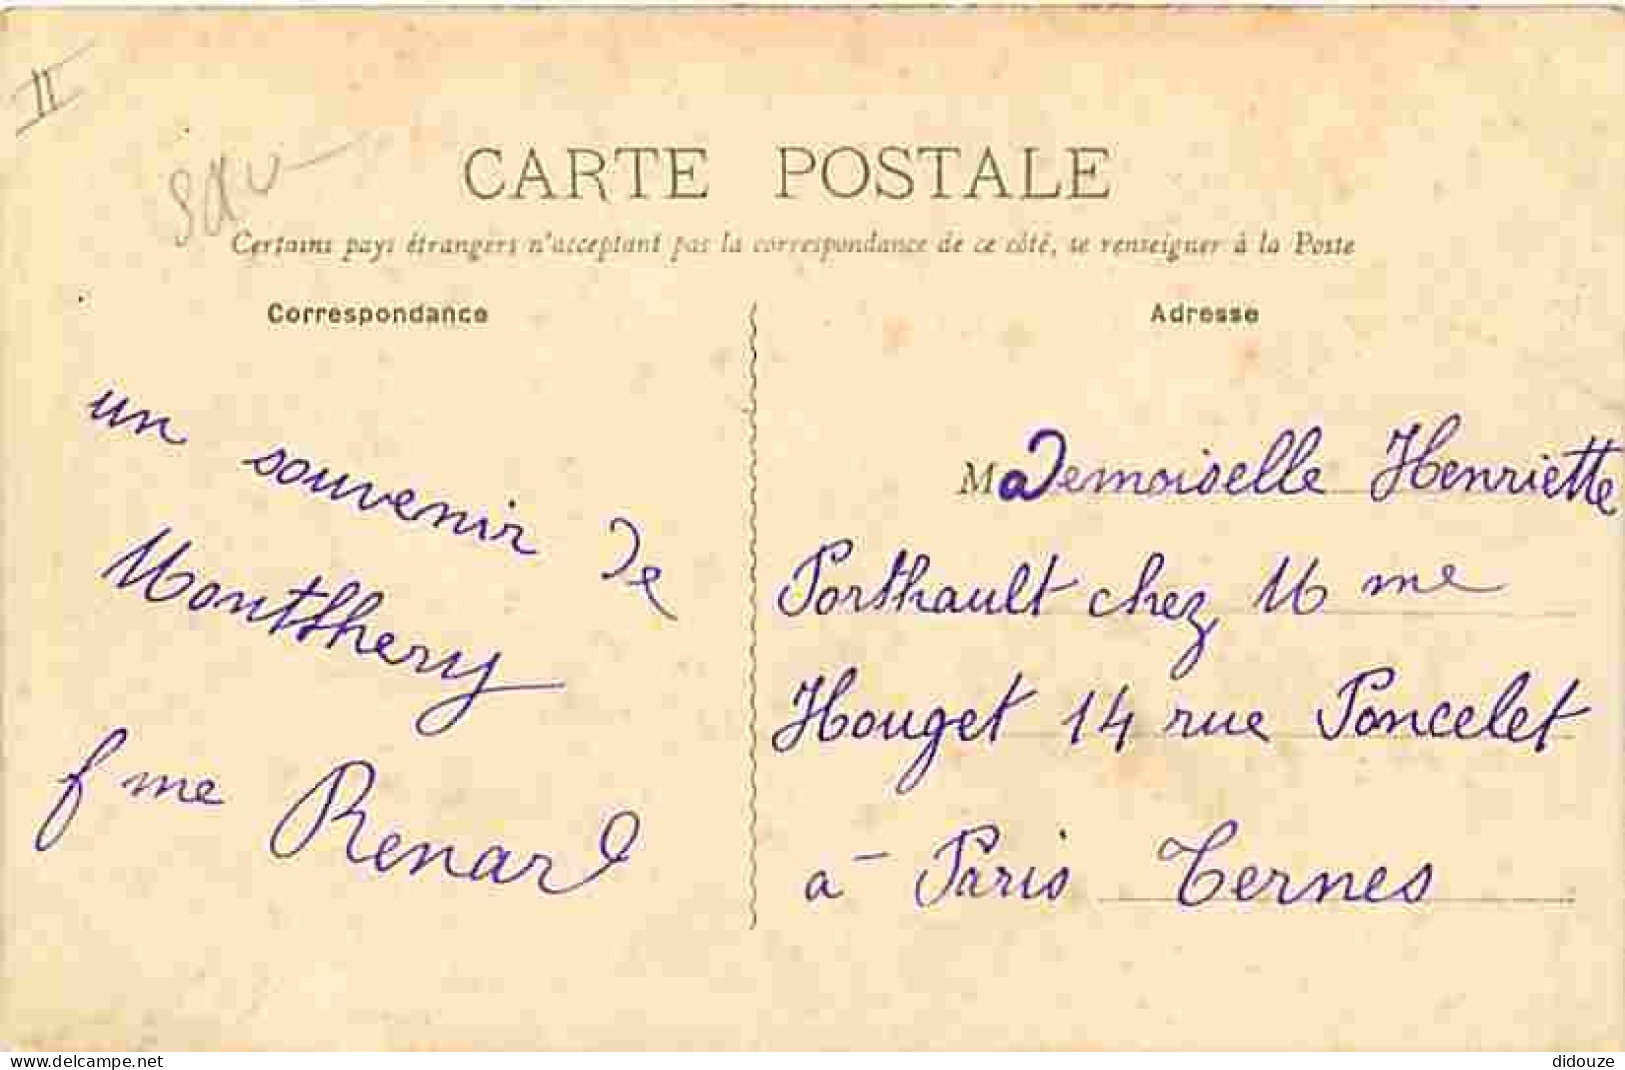 II
CARTE POSTALE
Certains pays étrangers n'acceptant pas la correspondance de ce côté, se renseigner à la Poste
Correspondance
un souvenir de
Montlhery
f me Renard
Adresse
Mademoiselle Henriette
Porthault chez Mme
Houget 14 rue Poncelet
à Paris Ternes
www.delcampe.net
didouze